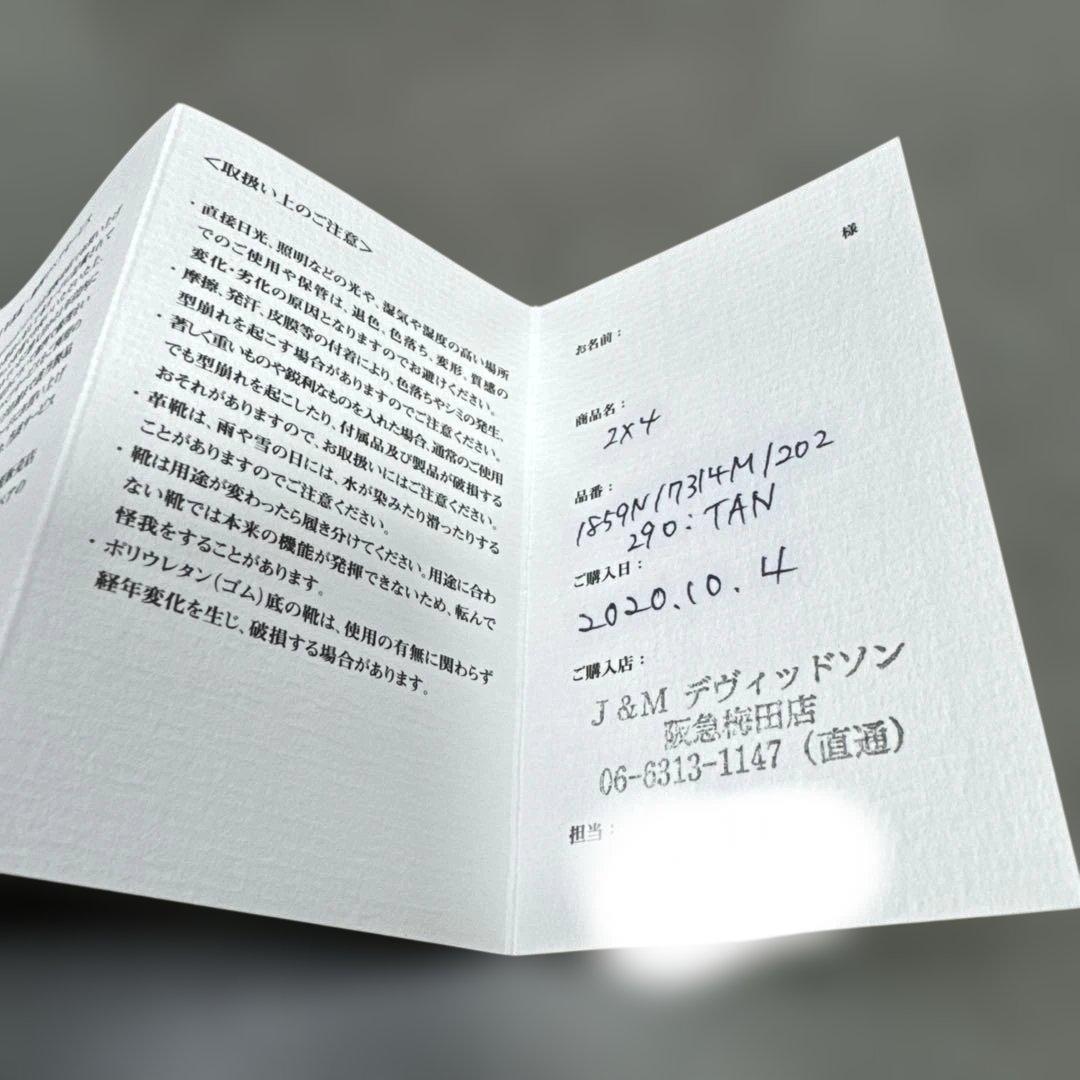 <取扱い上のご注意>
・直接日光、照明などの光や、湿気や湿度の高い場所
でのご使用や保管は、退色、色落ち、変形、質感の
変化・劣化の原因となりますのでお避けください。
・摩擦、発汗、皮膜等の付着により、色落ちやシミの発生、
型崩れを起こす場合がありますのでご注意ください。
・著しく重いものや鋭利なものを入れた場合、通常のご使用
でも型崩れを起こしたり、付属品及び製品が破損する
おそれがありますので、お取扱いにはご注意ください。
・革靴は、雨や雪の日には、水が染みたり滑ったりする
ことがありますのでご注意ください。
・靴は用途が変わったら履き分けてください。用途に合わ
ない靴では本来の機能が発揮できないため、転んで
怪我をすることがあります。
・ポリウレタン(ゴム)底の靴は、使用の有無に関わらず
経年変化を生じ、破損する場合があります。
様
お名前：
商品名：
2×4
品番：
1859N/7314M/202
290:TAN
ご購入日：
2020.10.4
ご購入店：
J&M デヴィッドソン
阪急梅田店
06-6313-1147 (直通)
担当：